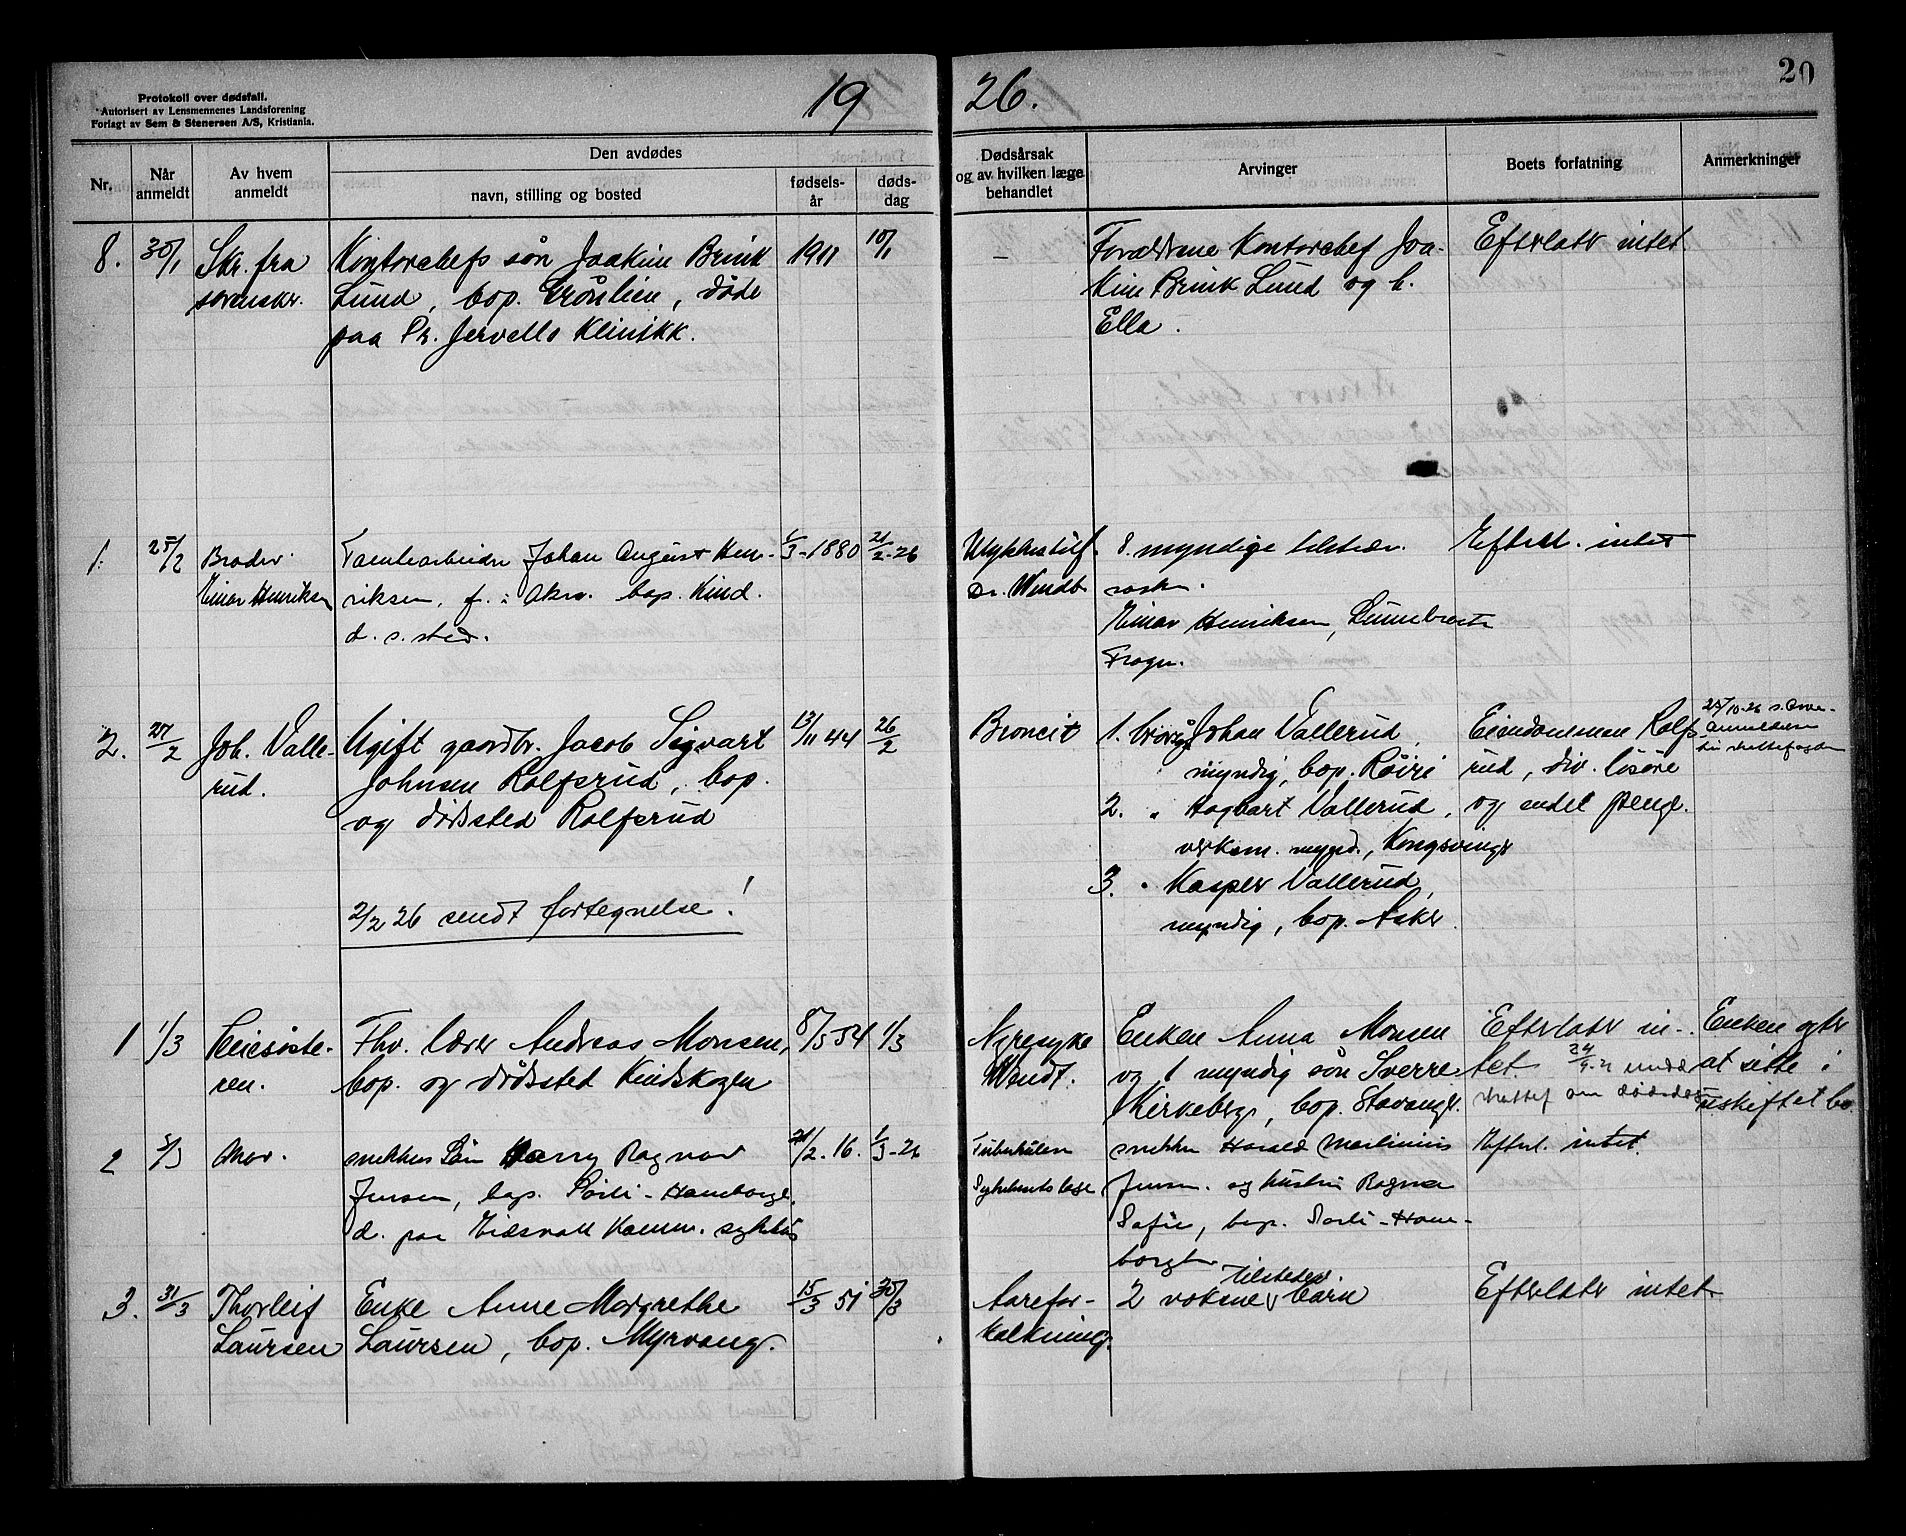 Protokoll over dødsfall.
Autorisert av Lensmennenes Landsforening
Forlagt av Sem & Stenersen A/S, Kristiania.
1926.
20
Nr.
Når anmeldt
Av hvem anmeldt
Den avdødes
navn, stilling og bosted
fødsels-år
døds-dag
Dødsårsak og av hvilken læge behandlet
Arvinger
Boets forfatning
Anmerkninger
8. 30/1 Skr. fra Kontorchefs søn Joakim Brink 1911 10/1 - Forældrene Kontorchef Joa- Efterlatr intet
sorenskr. Lund, bop. Grønlien, døde kim Brink Lund og h.
paa Dr. Jervells Klinikk. Ella.
1. 25/2 Broder Tomtearbeider Johan August Hen- 1/3-1880 21/2-26 Ulykkestilf. 8 myndige Efterl. intet
Einar Henriksen riksen, f. i Akr. bop. Kind. Dr. Wendt
d. s. sted. Einar Henriksen,
Frogn.
2. 27/2 Joh. Valle- Ugift gaardbr. Jacob Sigvart 13/11 44 26/2 Broncit 1. Johan Vallerud, Eiendommen Rolfs-
rud. Johnsen Rolfsrud, bop. myndig, bop. Røiri rud, div. løsøre
og dødssted Rolfsrud 2. " Hagbart Vallerud, og endel penge.
verksm. mynd., Kongsvinger
2/2 26 sendt fortegnelse! 3. " Kasper Vallerud,
myndig, bop. Asker.
1 1/3 Leiesøste- Fhv. lærer Andreas Monsen, 8/5 54 1/3 Nyresyke Enken Anna Monsen Efterlatr in- Enken agter
ren. bop. og dødssted Kindskogen Wendt. og 1 myndig søn Sverre tet. at sitte i
Kirkeberg, bop. Stavanger. uskiftet bo.
2 5/3 Mor. snekker Søn Harry Ragnar 21/2.16. 1/3-26 Tuberkulose snekker Harald Martinius Efterl. intet.
Jensen, bop. Sørli - Hamborg. Sykehusets læge Jensen og hustru Ragna
d. paa Eidsvoll Komm. sykehus Sofie, bop. Sørli - Ham-
borg
3. 31/3 Thorleif Enke Anne Margrethe 15/3 51 30/3 Aarefor- 2 voksne tilstedev. barn Efterlatr intet
Laursen Laursen, bop. Myrvang. kalkning.